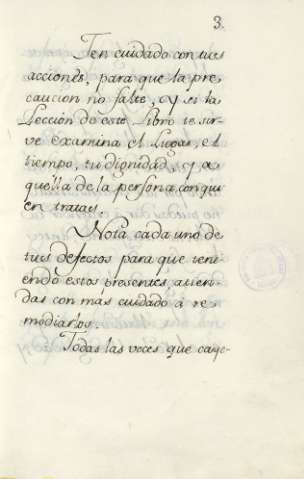 3.
Ten cuidado con tus
acciones, para que la pre
caucion no falte, y si la
Leccion de este Libro te sir-
ve examina el Lugar, el
tiempo, tu dignidad, y a
quella de la persona con qui
en tratas.
Nota cada uno de
tus defectos para que teni-
endo estos presentes, atien-
das con mas cuidado á re
mediarlos.
Todas las veces que caye-